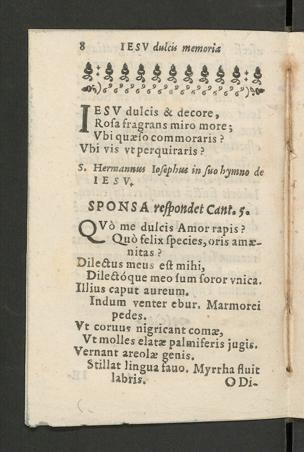 8 IESV dulcis memoria
IESV dulcis & decore,
Rosa fragrans miro more;
Vbi quæso commoraris?
Vbi vis vt perquiraris?
S. Hermannus Iosephus in suo hymno de
IESV.
SPONSA respondet Cant. 5.
QVò me dulcis Amor rapis?
Quò felix species, oris amæ-
nitas?
Dilectus meus est mihi,
Dilectóque meo sum soror vnica.
Illius caput aureum.
Indum venter ebur. Marmorei
pedes.
Vt coruus nigricant comæ,
Vt molles elatæ palmiferis jugis.
Vernant areolæ genis.
Stillat lingua fauo. Myrrha fluit
labris. O Di-